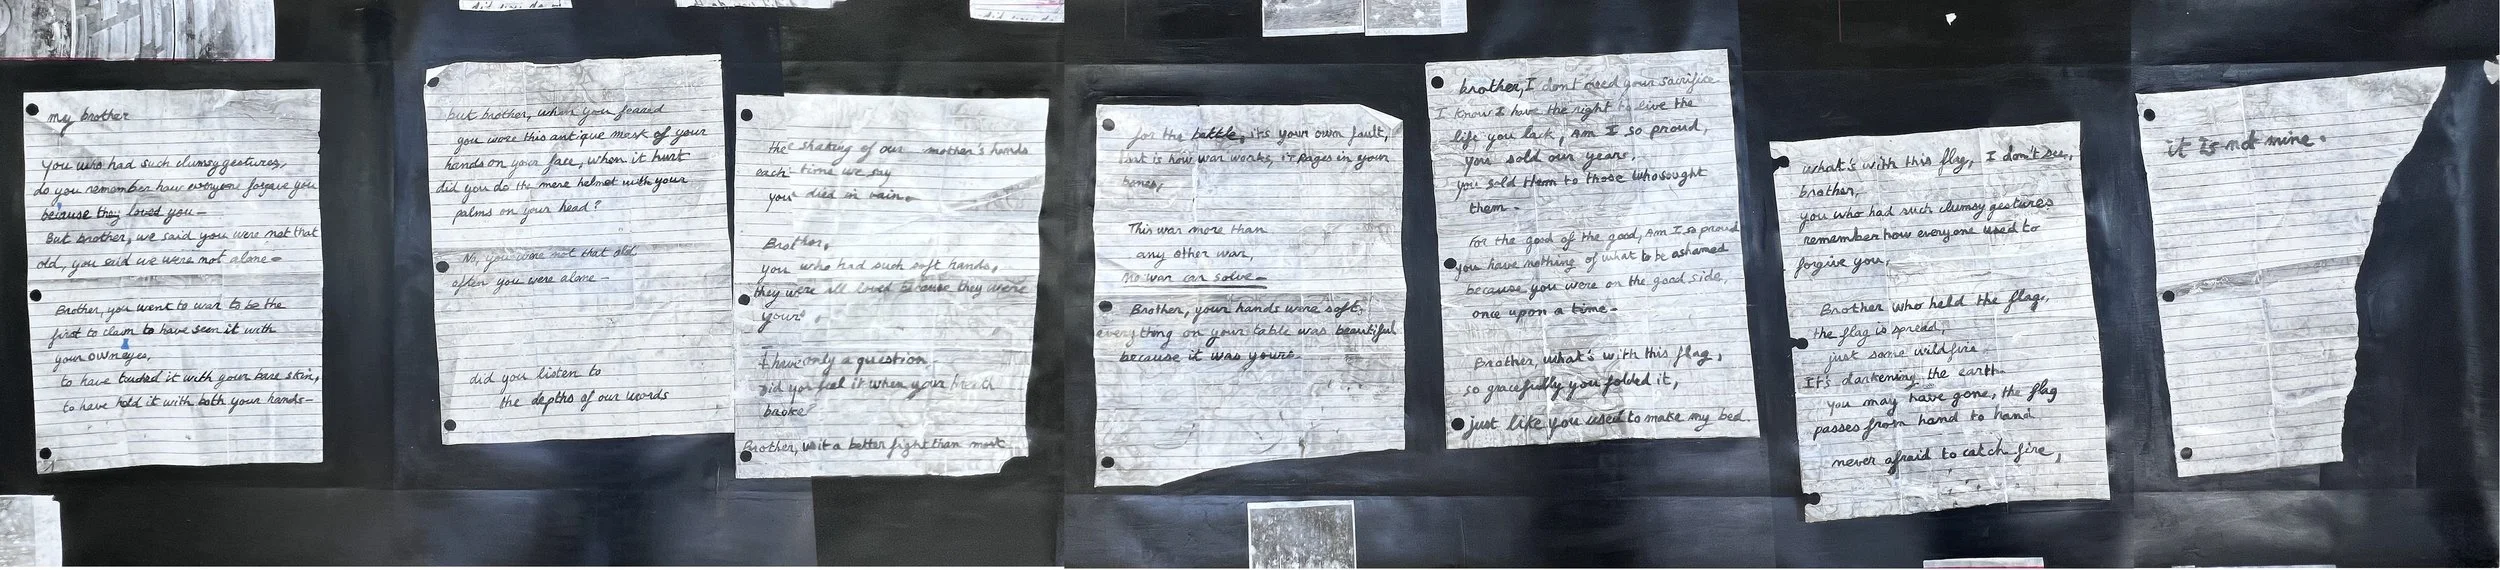 my brother
You who had such clumsy gestures,
do you remember how everyone forgave you
because they loved you—
But Brother, we said you were not that
old, you said we were not alone—
Brother, you went to war to be the
first to claim to have seen it with
your own eyes,
to have touched it with your bare skin,
to have held it with both your hands—
but brother, when you feared
you wore this antique mask of your
hands on your face, when it hurt
did you do the mere helmet with your
palms on your head?
No, you were not that old,
often you were alone—
did you listen to
the depths of our words
the shaking of our mother's hands
each time we say
you died in vain.
Brother,
you who had such soft hands,
they were all loved because they were
your
I have only a question
did you feel it when your breath
broke?
Brother, was it a better fight than most
for the battle, its your own fault,
that is how war works, it rages in your
bones,
This war more than
any other war,
no war can solve—
Brother, your hands were soft,
everything on your table was beautiful
because it was yours.
brother, I don't need your sacrifice
I know I have the right to live the
life you lack, Am I so proud,
you sold our years,
you sold them to those who sought
them—
For the good of the good, Am I so proud
you have nothing of what to be ashamed
because you were on the good side,
once upon a time—
Brother, what's with this flag,
so gracefully you folded it,
just like you used to make my bed.
what's with this flag, I don't see,
brother,
you who had such clumsy gestures
remember how everyone used to
forgive you,
Brother who held the flag,
the flag is spread,
just some wildfire
It's darkening the earth—
You may have gone, the flag
passes from hand to hand
never afraid to catch fire,
it is not mine.